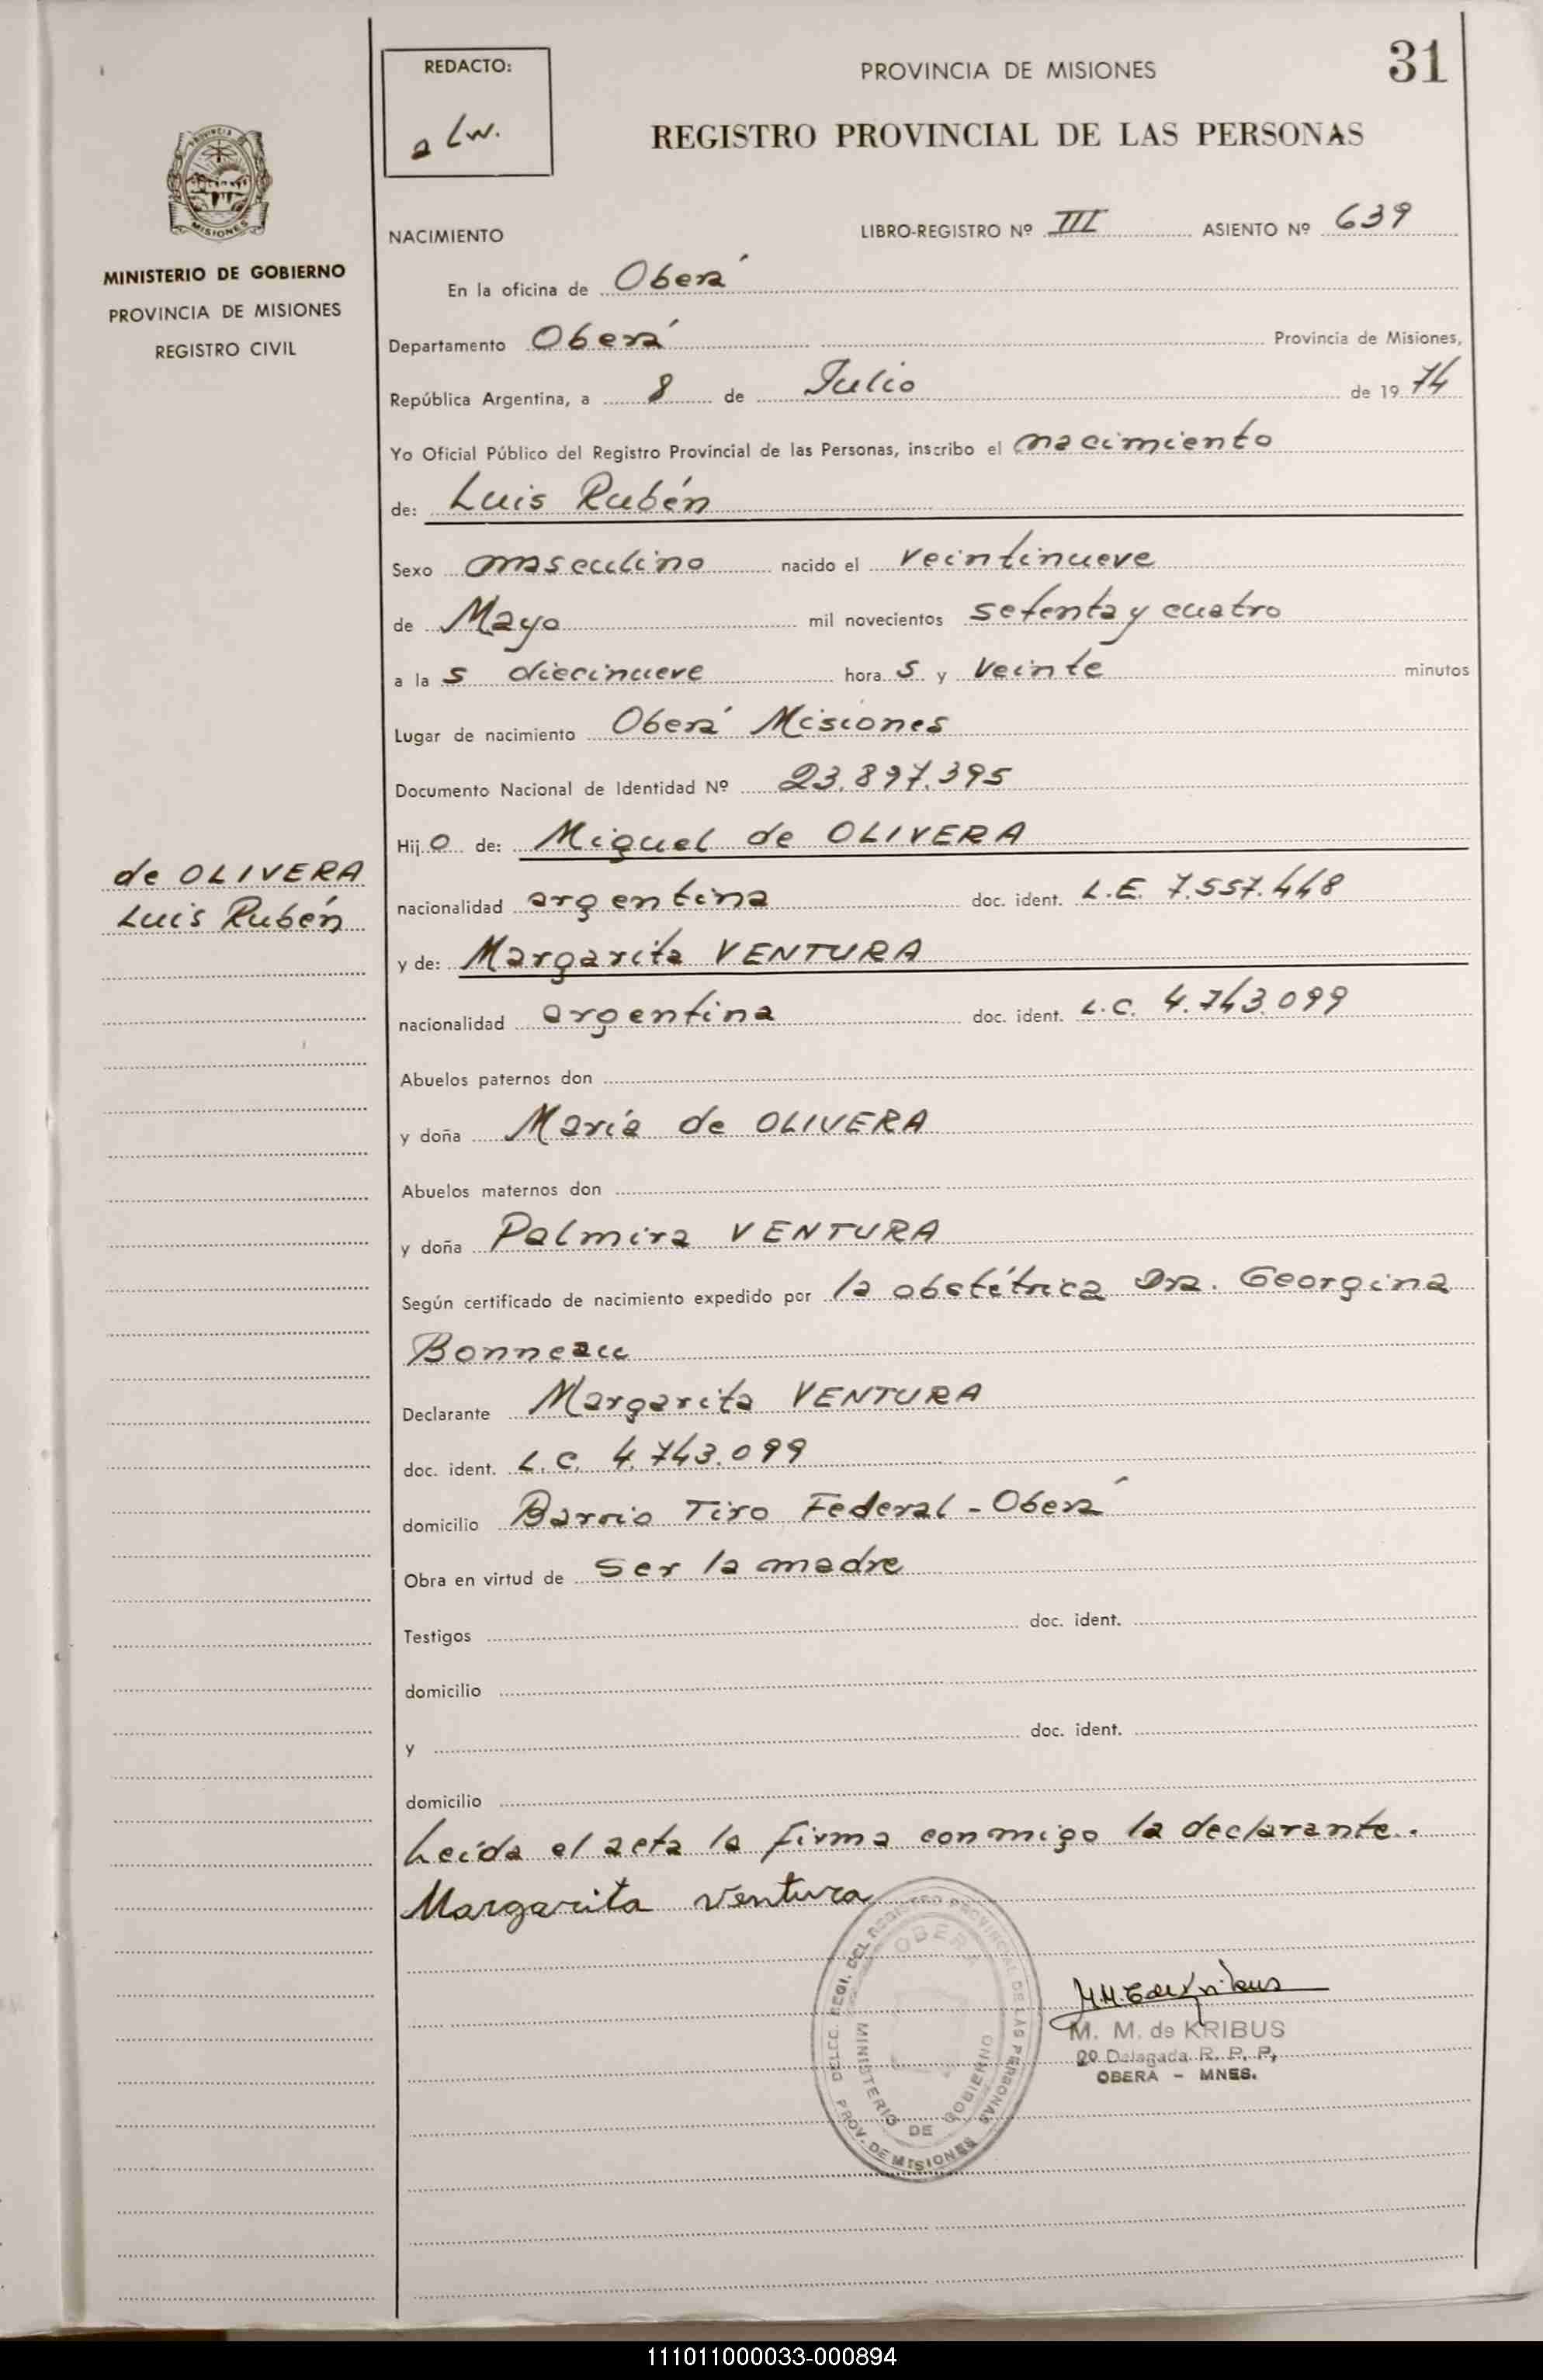 31
REDACTO:
a Lw.
PROVINCIA DE MISIONES
REGISTRO PROVINCIAL DE LAS PERSONAS
PROVINCIA
MISIONES
MINISTERIO DE GOBIERNO
PROVINCIA DE MISIONES
REGISTRO CIVIL
NACIMIENTO LIBRO-REGISTRO Nº III ASIENTO Nº 639
En la oficina de Oberá
Departamento Oberá Provincia de Misiones,
República Argentina, a 8 de Julio de 1974
Yo Oficial Público del Registro Provincial de las Personas, inscribo el nacimiento
de: Luis Rubén
Sexo masculino nacido el veintinueve
de Mayo mil novecientos setenta y cuatro
a las diecinueve horas y veinte minutos
Lugar de nacimiento Oberá Misiones
Documento Nacional de Identidad Nº 23.897.395
Hijo de: Miguel de OLIVERA
de OLIVERA
Luis Rubén
nacionalidad argentina doc. ident. L.E. 7.557.448
y de: Margarita VENTURA
nacionalidad argentina doc. ident. L.C. 4.743.099
Abuelos paternos don
y doña María de OLIVERA
Abuelos maternos don
y doña Palmira VENTURA
Según certificado de nacimiento expedido por la obstétrica Dra. Georgina
Bonneau
Declarante Margarita VENTURA
doc. ident. L.C. 4.743.099
domicilio Barrio Tiro Federal - Oberá
Obra en virtud de ser la madre
Testigos doc. ident.
domicilio
y doc. ident.
domicilio
Leída el acta la firma conmigo la declarante.
Margarita Ventura
DELEG. REGI. DEL REGISTRO PROVINCIAL DE LAS PERSONAS
OBERA
MINISTERIO DE GOBIERNO
PROV. DE MISIONES
M. M. de KRIBUS
Delegada R. P. P,
OBERA - MNES.
111011000033-000894